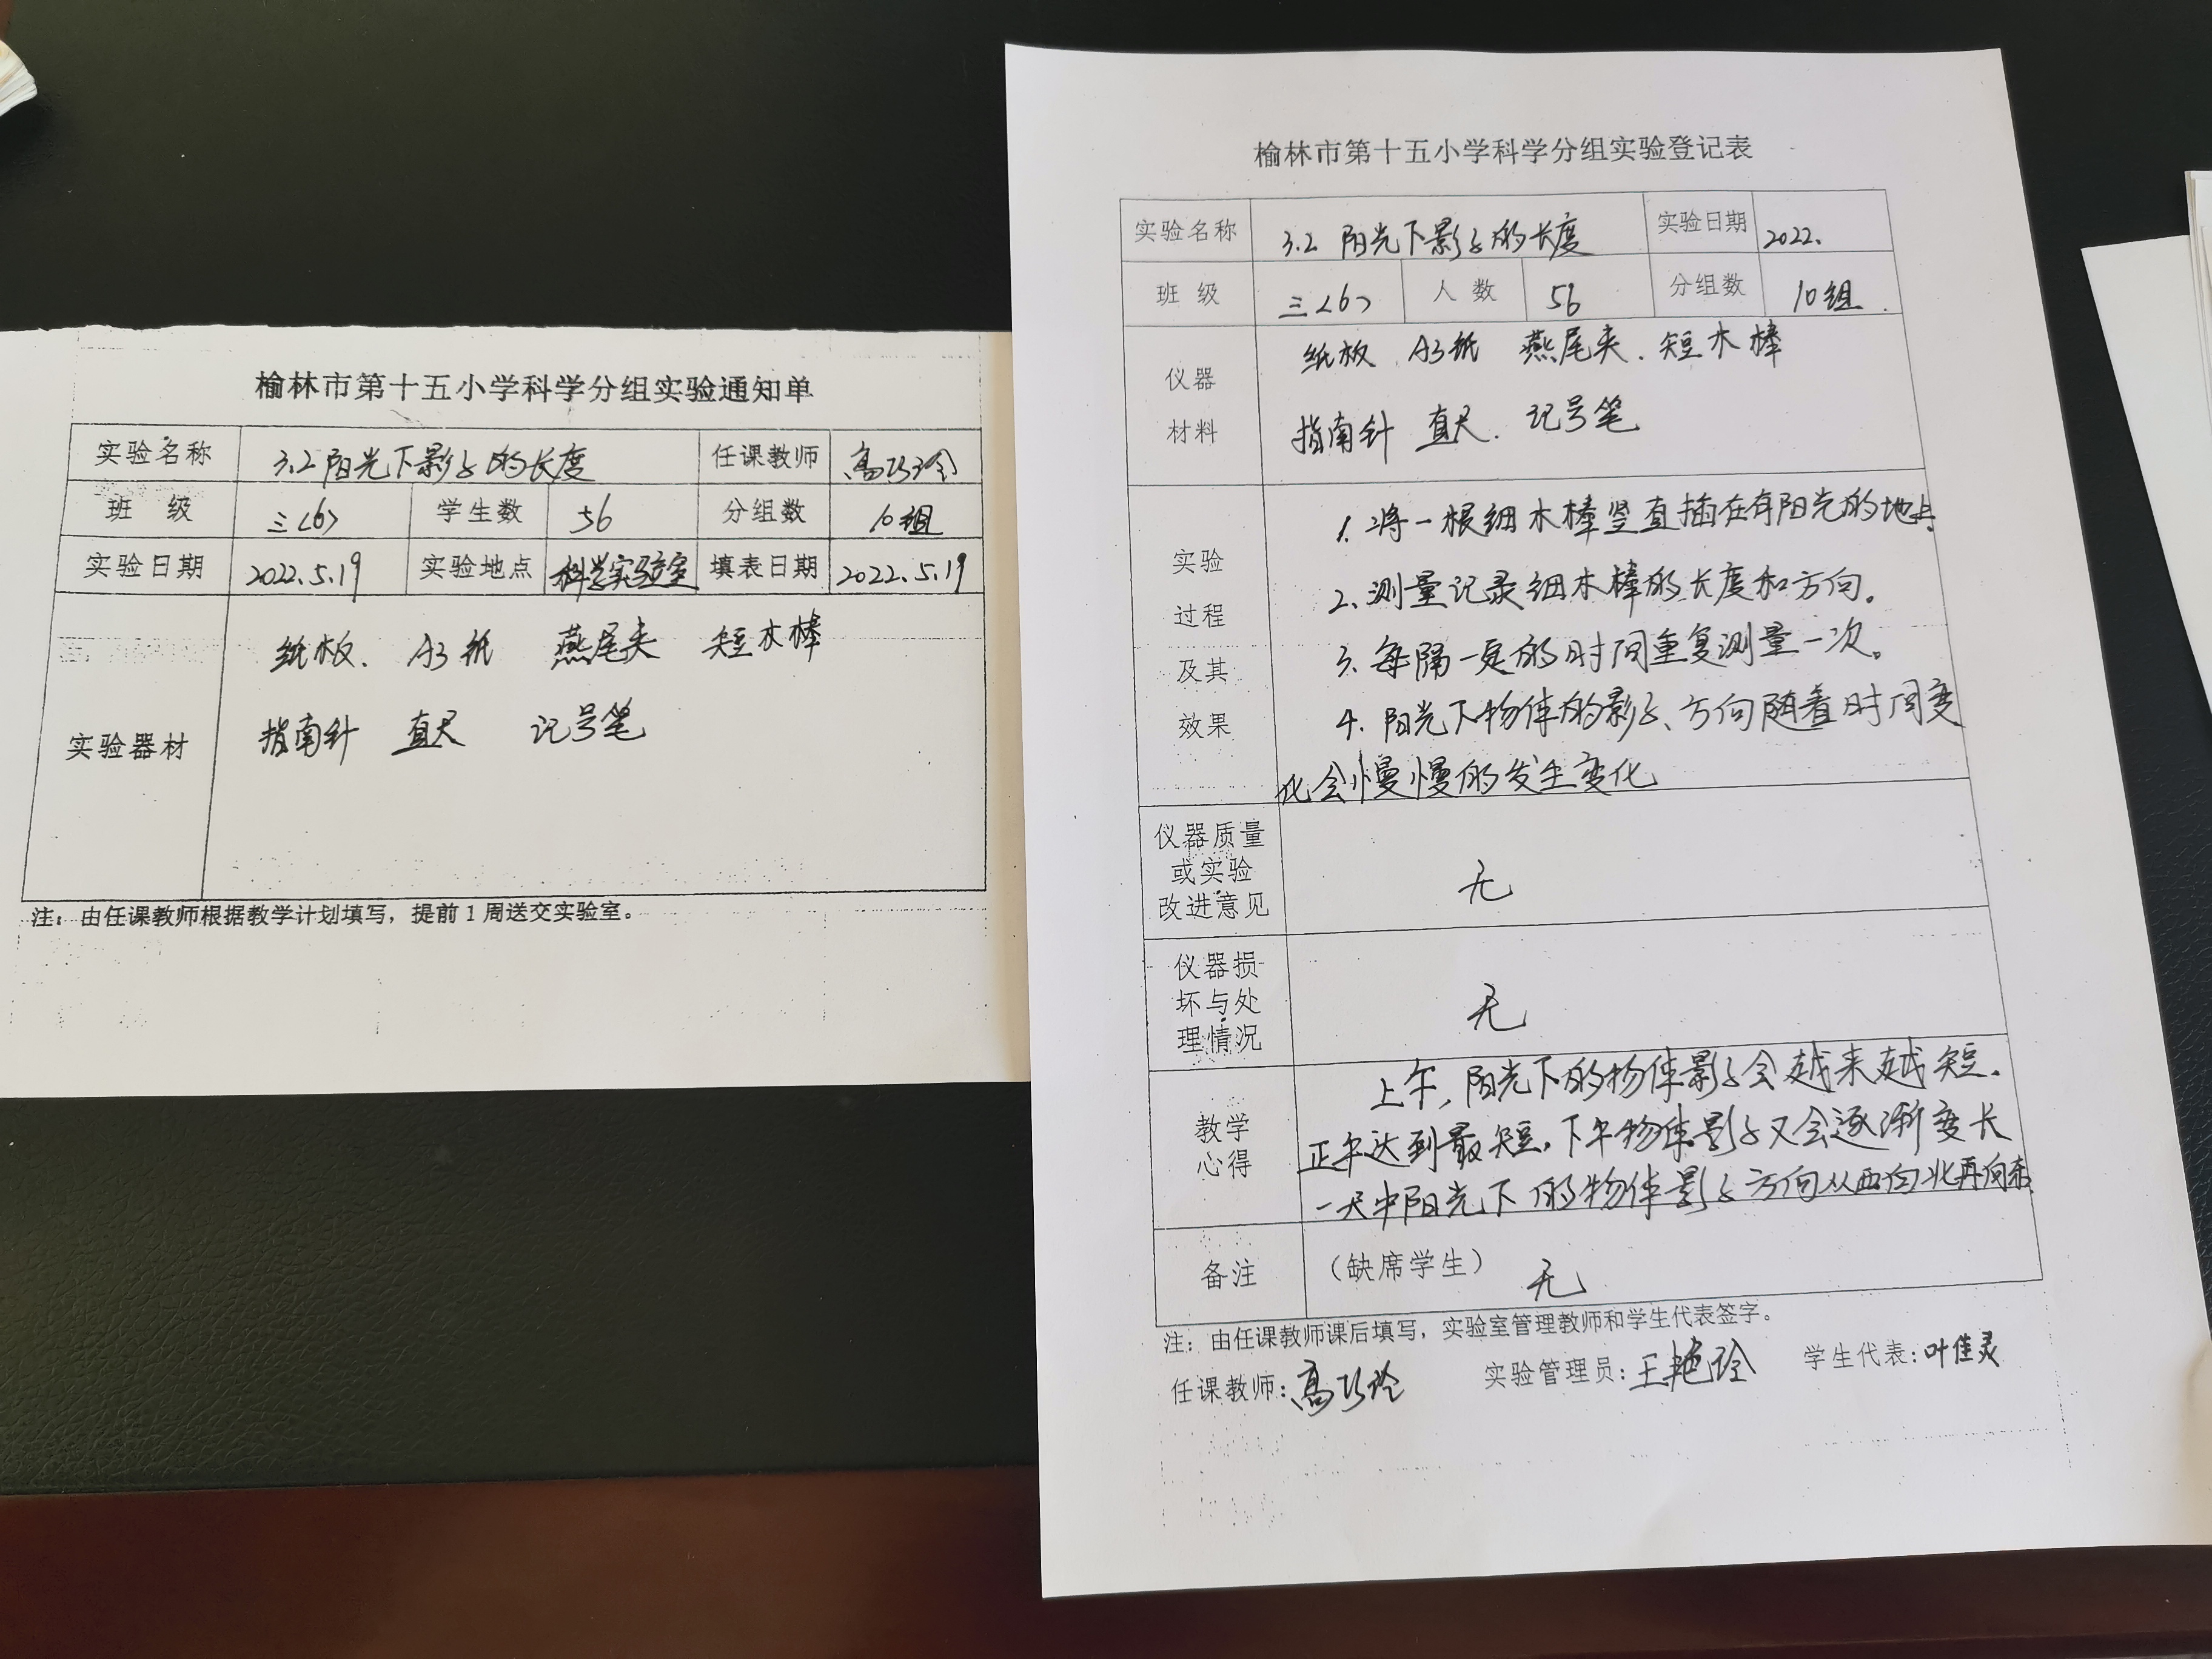 榆林市第十五小学科学分组实验通知单
实验名称 3.2阳光下影子的长度 任课教师 高巧玲
班 级 三<6> 学生数 56 分组数 10组
实验日期 2022.5.19 实验地点 科学实验室 填表日期 2022.5.19
纸板. A3纸 燕尾夹 短木棒
指南针 直尺 记号笔
实验器材
注：由任课教师根据教学计划填写，提前1周送交实验室。
榆林市第十五小学科学分组实验登记表
实验名称 3.2 阳光下影子的长度 实验日期 2022.
班 级 三<6> 人 数 56 分组数 10组.
仪器
材料
纸板 A3纸 燕尾夹. 短木棒
指南针 直尺. 记号笔
实验
过程
及其
效果
1. 将一根细木棒竖直插在有阳光的地上
2、测量记录细木棒的长度和方向。
3、每隔一定的时间重复测量一次。
4. 阳光下物体的影子、方向随着时间变
化会慢慢的发生变化
仪器质量
或实验
改进意见
无
仪器损
坏与处
理情况
无
教学
心得
上午，阳光下的物体影子会越来越短.
正午达到最短，下午物体影子又会逐渐变长
一天中阳光下的物体影子方向从西向北再向东
备注 （缺席学生） 无
注：由任课教师课后填写，实验室管理教师和学生代表签字。
任课教师：高巧玲 实验管理员：王艳玲 学生代表：叶佳灵